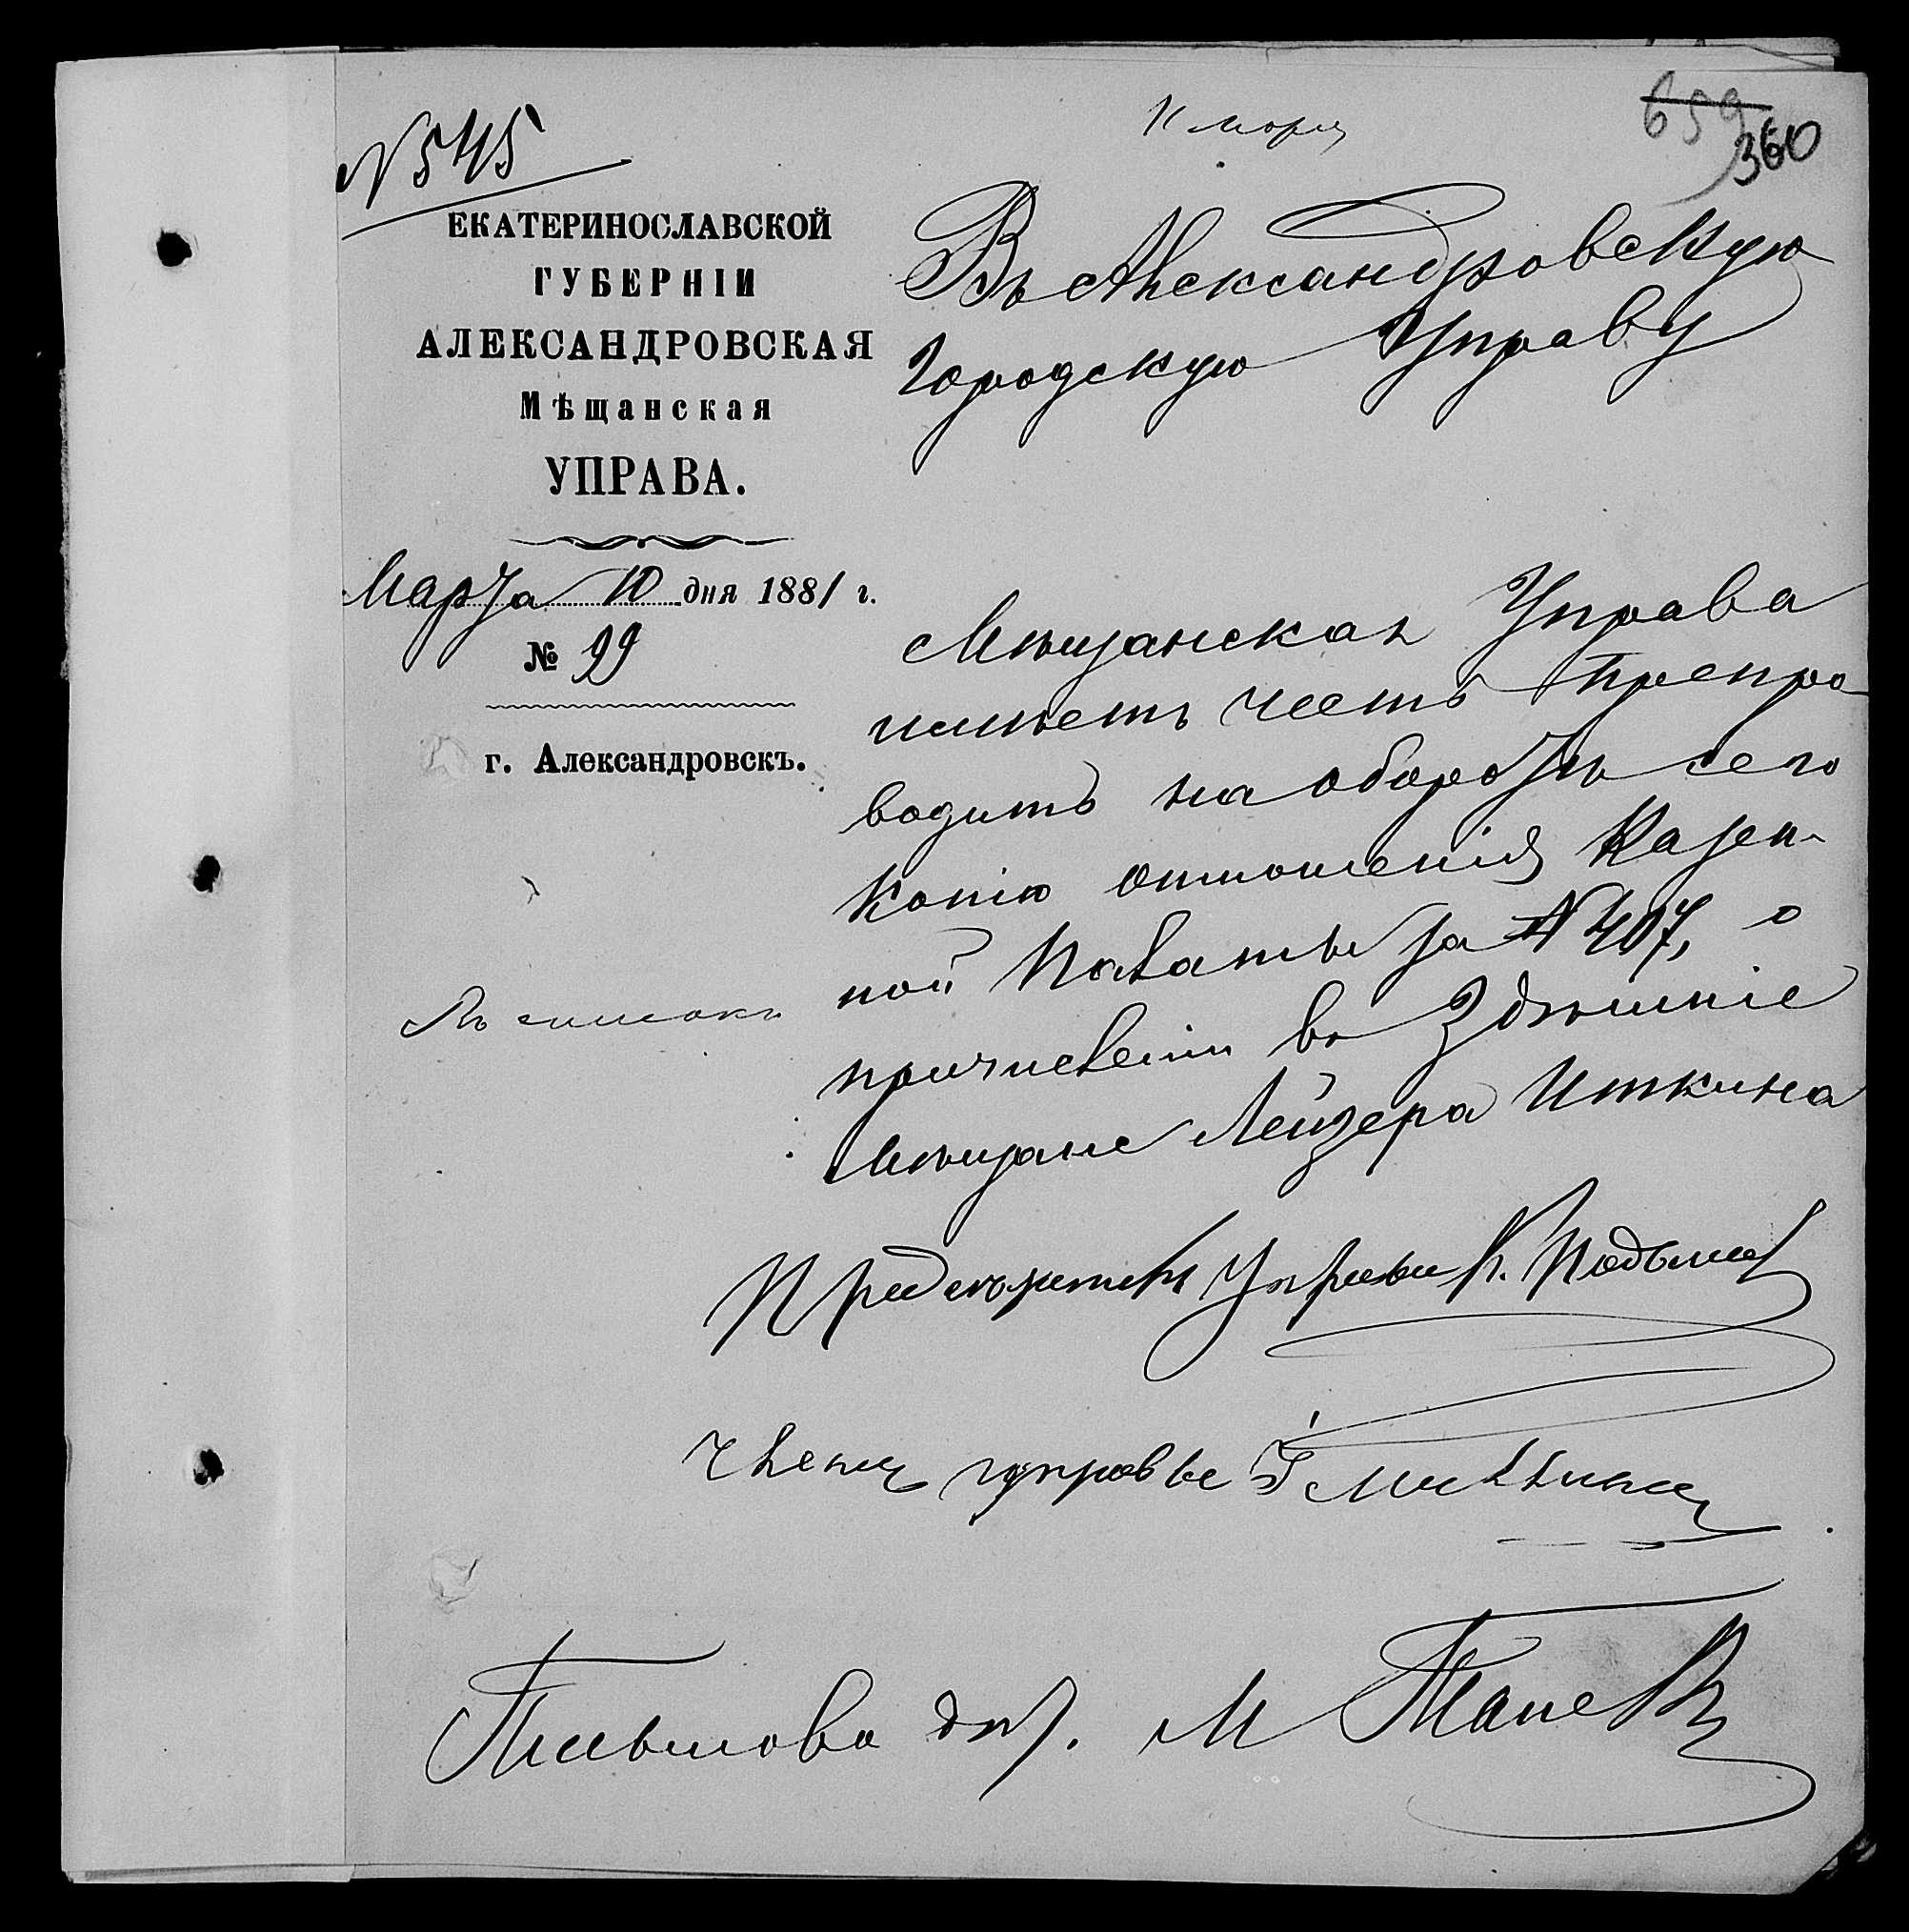 11 марта
659
360
№ 545
ЕКАТЕРИНОСЛАВСКОЙ
ГУБЕРНІИ
АЛЕКСАНДРОВСКАЯ
Мѣщанская
УПРАВА.
Марта 10 дня 1881 г.
№ 99
г. Александровскъ.
Въ Александровскую
Городскую Управу
Мѣщанская Управа
имѣетъ честь препро
водить на оборотѣ сего
копію отношенія Казен-
ной Палаты за № 407, о
причисленіи въ Здѣшніе
мѣщане Лейзера Иткина
Къ списку
Предсѣдатель Управы
Членъ управы
М